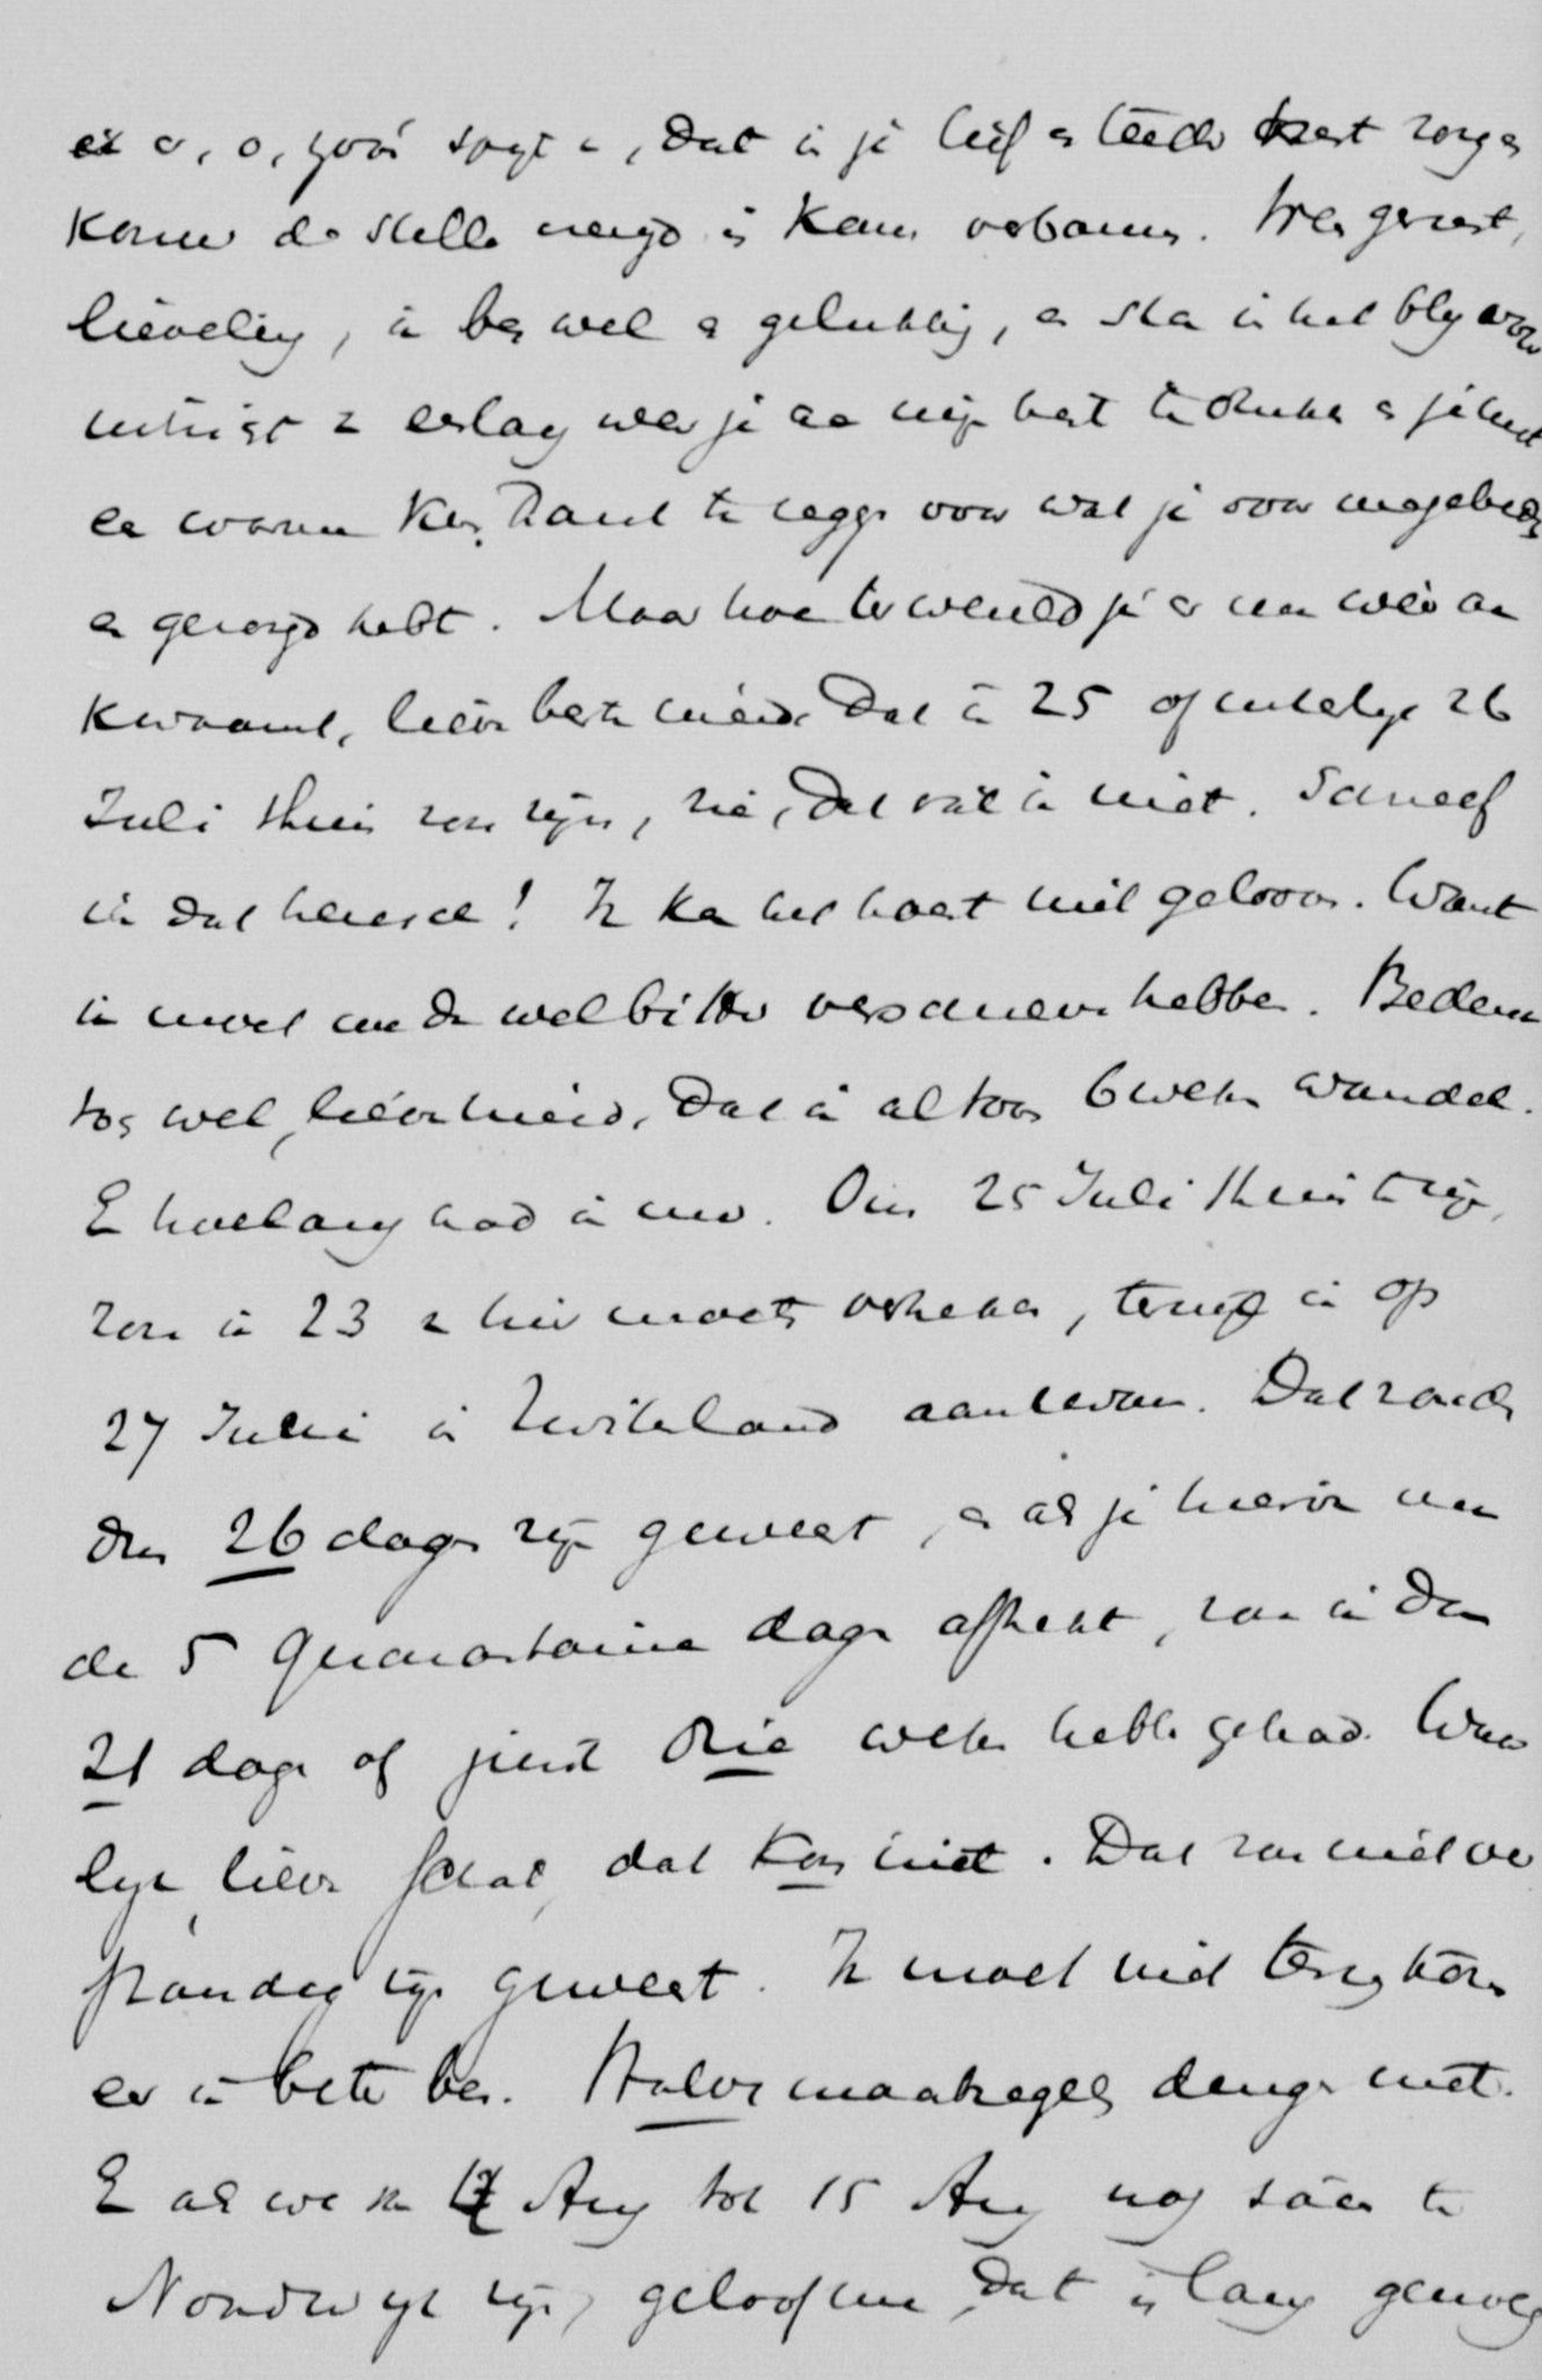 o, o, zoo'n spijt, dat ik je lief en teeder hart zorgen
komen de stelle vreugd is komen verbannen. Wees gerust,
lieveling, ik ben wel en gelukkig, en sta ik het bly voor
uitzigt zoo eerlang weer je aan mijn hart te drukken en je met
een warmen kus dank te zeggen voor wat je voor me gebeden
en gezorgd hebt. Maar hoe ter wereld je er nu weer aan
kwaamt, lieve beste meid, dat ik 25 of uiterlyk 26
Juli thuis zou zijn, zie, dat vat ik niet. Schreef
ik dat heusch! Ik kan het haast niet gelooven. Want
ik moet me dan wel bitter verschreven hebben. Bedenk
tog wel, lieve meid, dat ik altoos 6 weken wandel.
En hoelang had ik nu. Om 25 Juli thuis te zijn,
zou ik 23 van hier moeten vertrekken, terwyl ik op
27 Juni in Zwitserland aankwam. Dat zouden
dus 26 dagen zijn geweest, en als je hiervan nu
de 5 Quarantaine dagen aftrekt, zou ik dan
21 dagen of juist drie weken hebben gehad. Waar
lyk, lieve schat, dat kon niet. Dat zou niet ver
standig zijn geweest. Ik moet niet terug komen
eer ik beter ben. Halve maatregels deugen niet.
En als we van 1 Aug tot 15 Aug nog saam te
Noordwyk zijn, geloof me, dat is lang genoeg